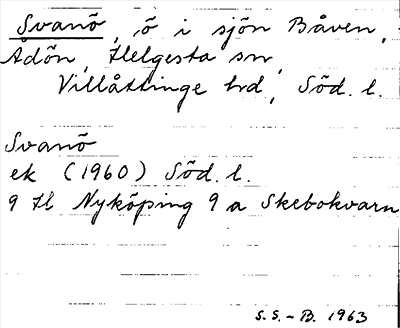 Svanö, ö i sjön Båven,
Ådön, Helgesta sn,
Villåttinge hd, Söd. l.
Svanö
ek (1960) Söd. l.
9 H Nyköping 9 a Skebokvarn
S.S.-B. 1963